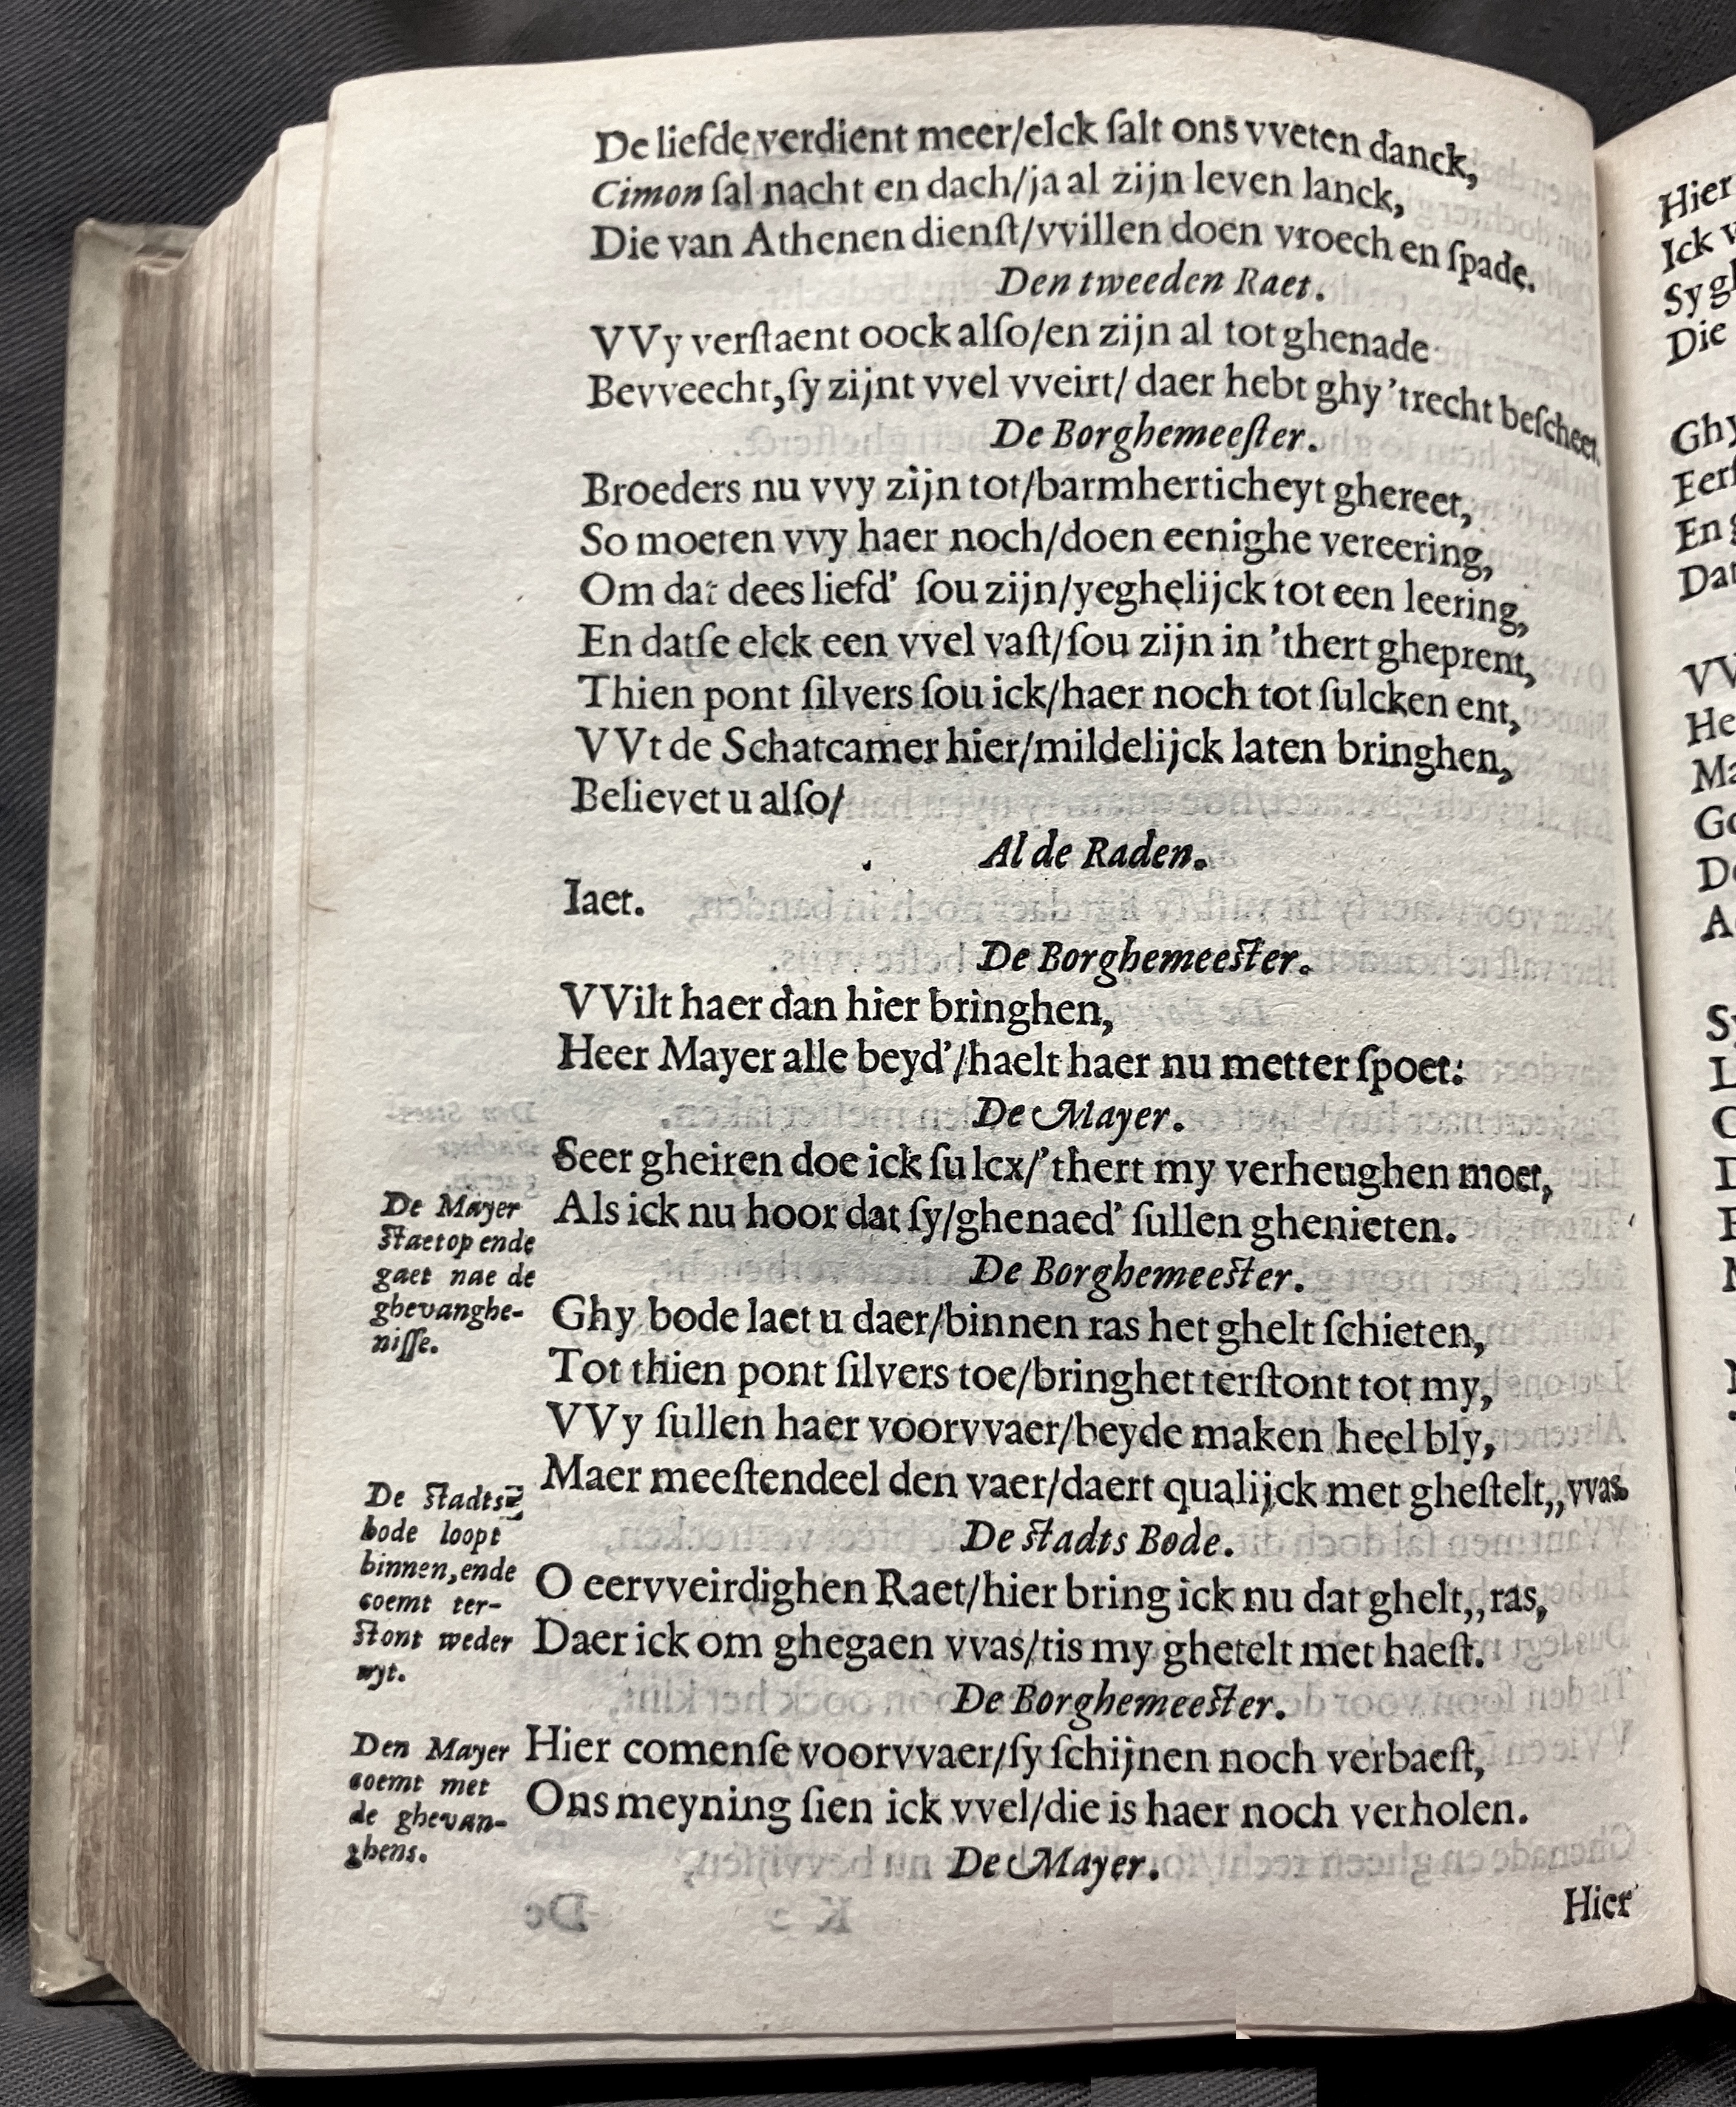 De liefde verdient meer/elck ſalt ons vveten danck,
Cimon ſal nacht en dach/ja al zijn leven lanck,
Die van Athenen dienſt/vvillen doen vroech en ſpade.
Den tweeden Raet.
VVy verſtaent oock alſo/en zijn al tot ghenade
Bevveecht,ſy zijnt vvel vveirt/ daer hebt ghy ’trecht beſcheet.
De Borghemeeſter.
Broeders nu vvy zijn tot/barmherticheyt ghereet,
So moeten vvy haer noch/doen eenighe vereering,
Om dat dees liefd’ ſou zijn/yeghelijck tot een leering,
En datſe elck een vvel vaſt/ſou zijn in ’thert gheprent,
Thien pont ſilvers ſou ick/haer noch tot ſulcken ent,
VVt de Schatcamer hier/mildelijck laten bringhen,
Believet u alſo/
Al de Raden.
Iaet.
De Borghemeeſter.
VVilt haer dan hier bringhen,
Heer Mayer alle beyd’/haelt haer nu metter ſpoet:
De Mayer.
Seer gheiren doe ick ſulcx/’thert my verheughen moet,
Als ick nu hoor dat ſy/ghenaed’ ſullen ghenieten.
De Mayer
ſtaet op ende
gaet nae de
ghevanghe-
niſſe.
De Borghemeeſter.
Ghy bode laet u daer/binnen ras het ghelt ſchieten,
Tot thien pont ſilvers toe/bringhet terſtont tot my,
VVy ſullen haer voorvvaer/beyde maken heel bly,
Maer meeſtendeel den vaer/daert qualijck met gheſtelt,,vvas.
De ſtadts
bode loopt
binnen,ende
coemt ter-
ſtont weder
wyt.
De ſtadts Bode.
O eervveirdighen Raet/hier bring ick nu dat ghelt,,ras,
Daer ick om ghegaen vvas/tis my ghetelt met haeſt.
De Borghemeeſter.
Hier comenſe voorvvaer/ſy ſchijnen noch verbaeſt,
Ons meyning ſien ick vvel/die is haer noch verholen.
Den Mayer
coemt met
de ghevan-
ghens.
De Mayer.
Hier
Hier
Ick
Sy
Die
Ghy